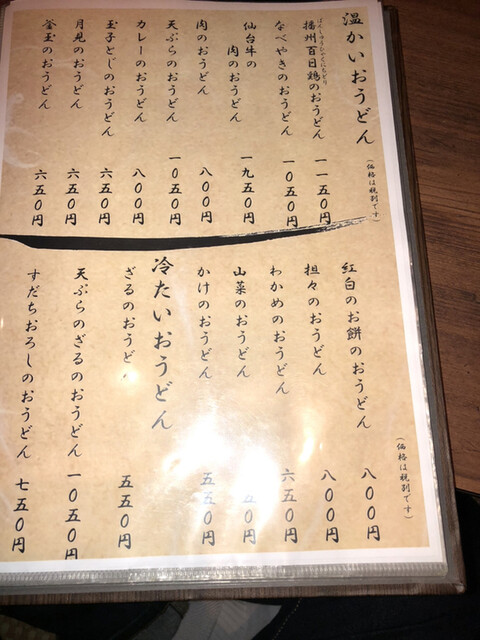 温かいおうどん
(価格は税別です)
ばんしゅうひゃくにちどり
播州百日鶏のおうどん 一一五〇円
なべやきのおうどん 一〇五〇円
仙台牛の
肉のおうどん 一九五〇円
肉のおうどん 八〇〇円
天ぷらのおうどん 一〇五〇円
カレーのおうどん 八〇〇円
玉子とじのおうどん 六五〇円
月見のおうどん 六五〇円
釜玉のおうどん 六五〇円
(価格は税別です)
紅白のお餅のおうどん 八〇〇円
担々のおうどん 八〇〇円
わかめのおうどん 六五〇円
山菜のおうどん 五〇円
かけのおうどん 五五〇円
冷たいおうどん
ざるのおうど 五五〇円
天ぷらのざるのおうどん 一〇五〇円
すだちおろしのおうどん 七五〇円